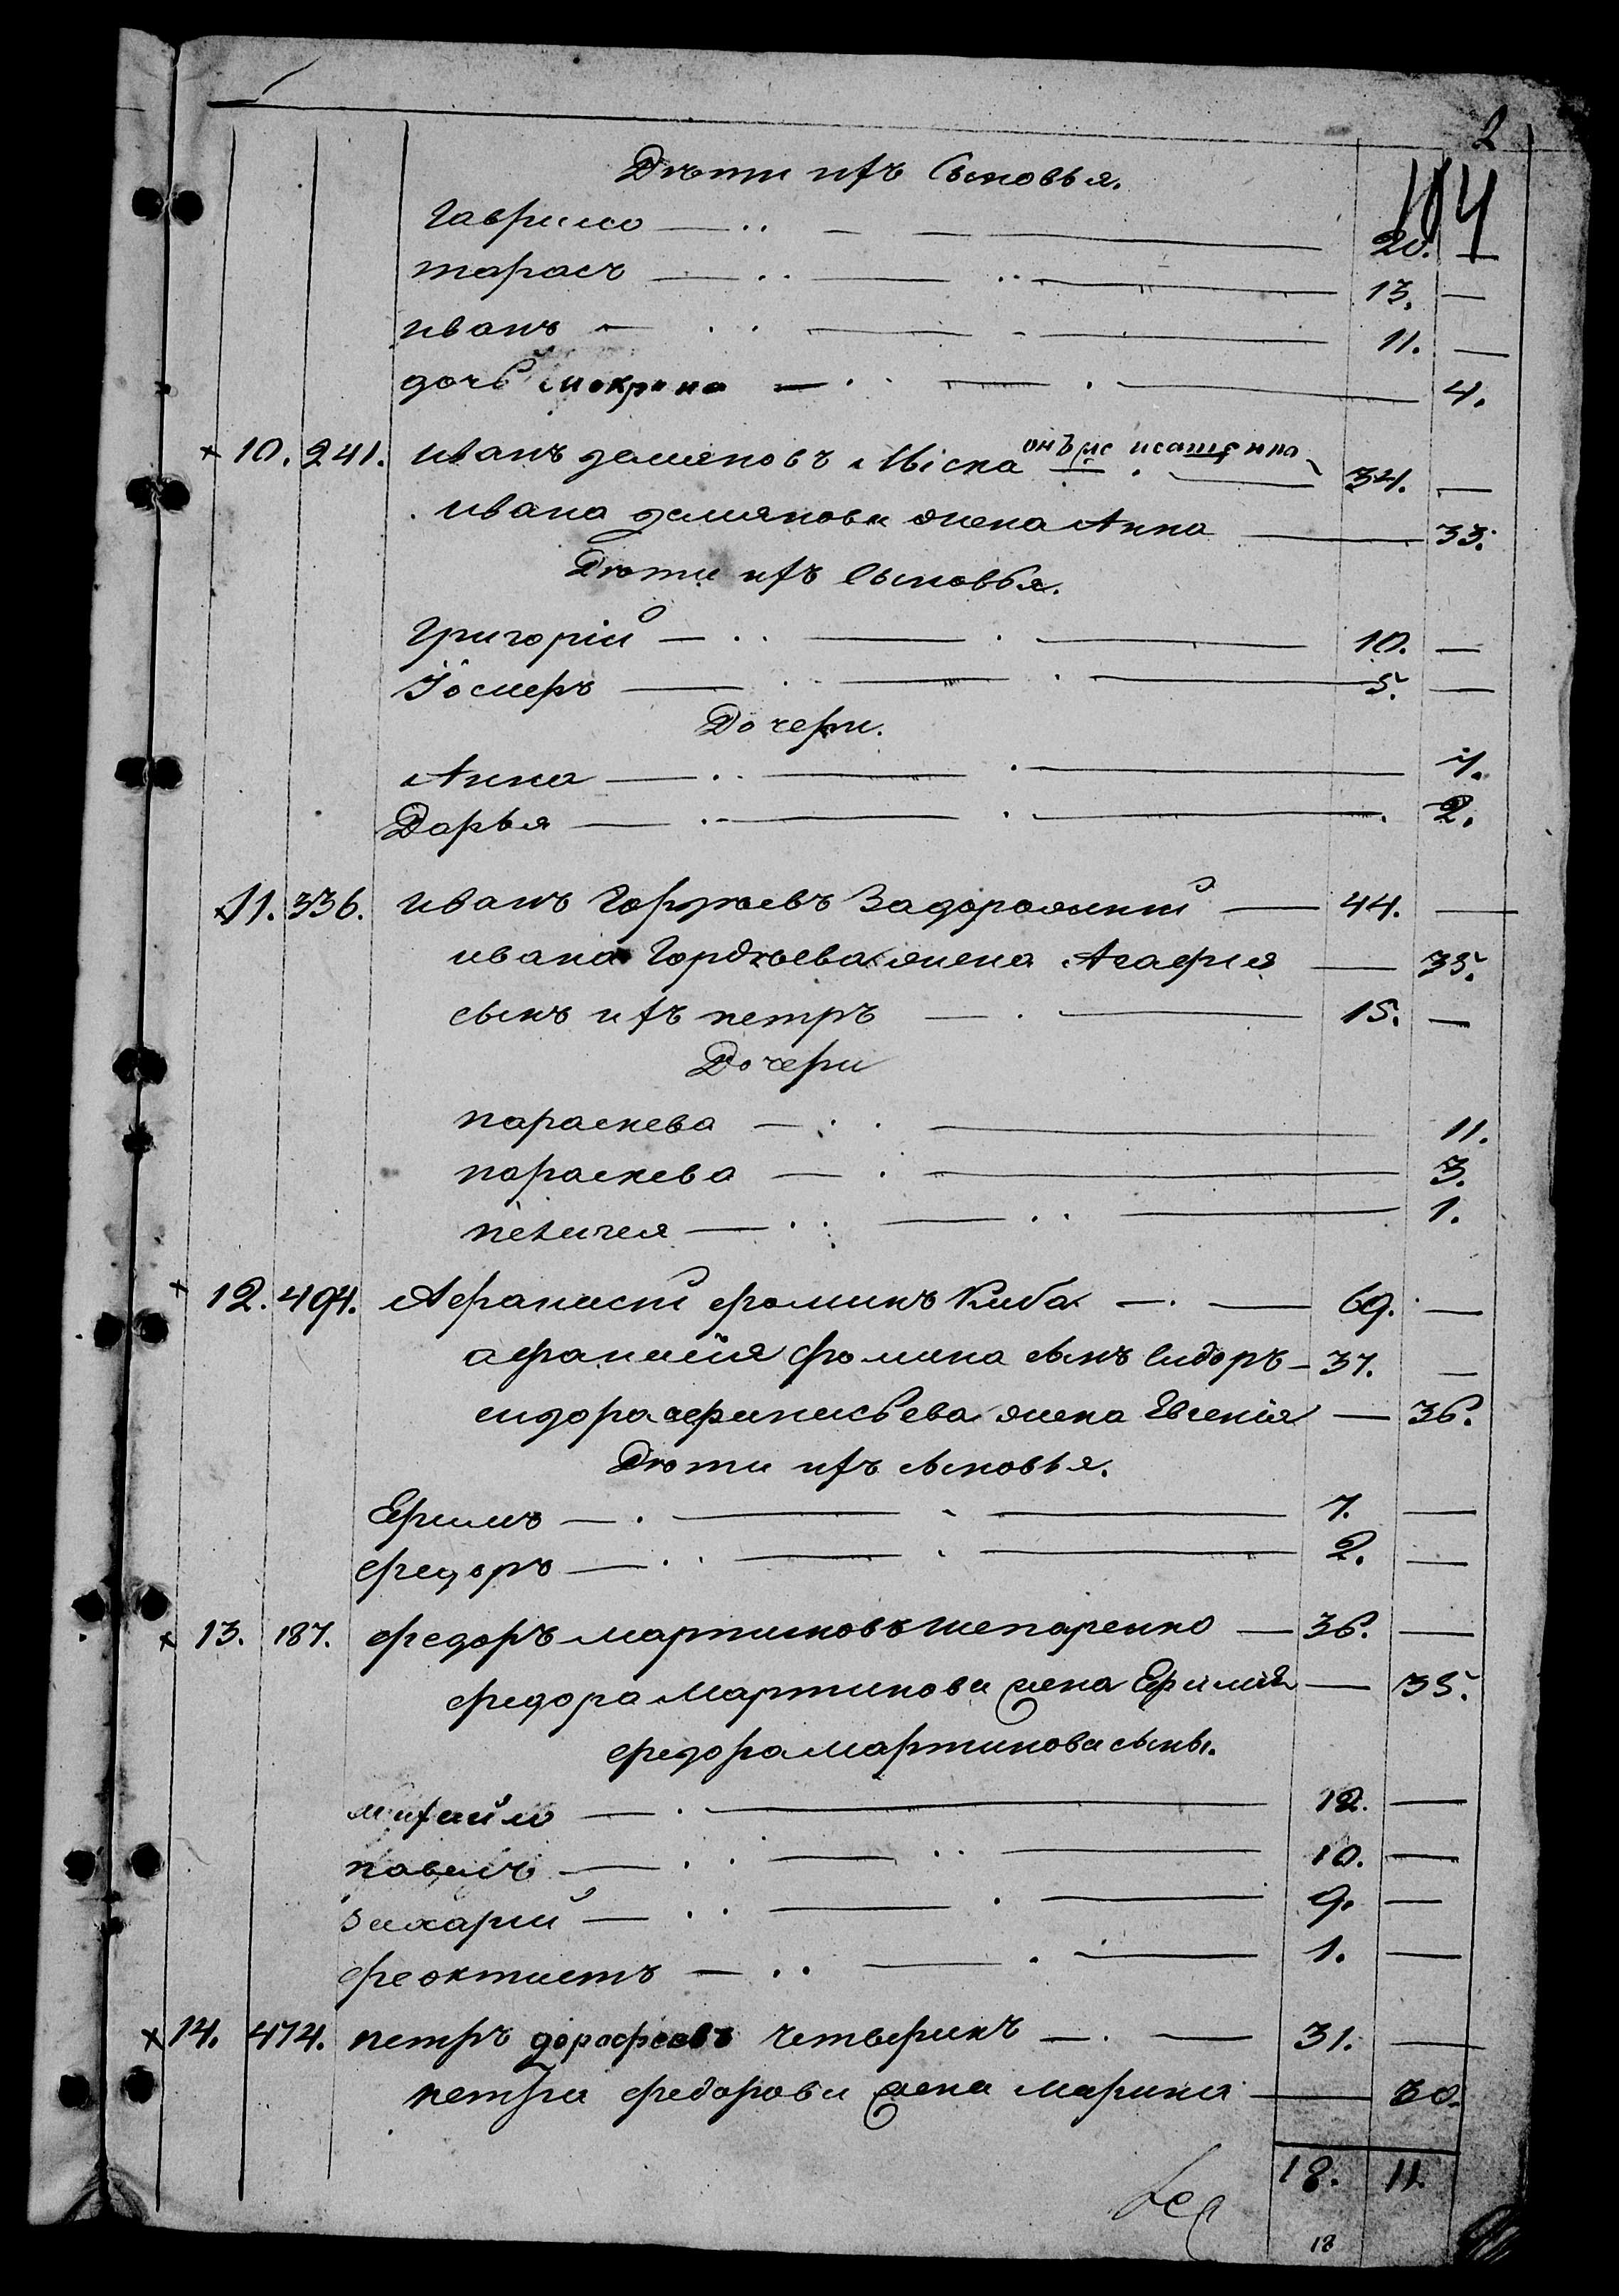 2
104
Дѣти ихъ Сыновья.
Гаврило — 20. —
тарасъ — 13. —
иванъ — 11. —
дочь мокрина — 4.
× 10. 241. иванъ демяновъ Міска онъ же 34. —
ивана демянова жена Анна — 33.
Дѣти ихъ Сыновья.
Григорій — 10. —
Іосифъ — 5. —
Дочери.
Анна — 7.
Дарья — 2.
× 11. 336. иванъ Гордѣевъ Задорожній — 44. —
ивана Гордѣева жена Агафія — 35.
сынъ ихъ петръ — 15. —
Дочери
параскева — 11.
параскева — 3.
1.
× 12. 494. Афанасій фоминъ Киба — 69. —
афанасія фомина сынъ Сидоръ — 37. —
сидора афанасьева жена Евгенія — 36.
Дѣти ихъ сыновья.
Ефимъ — 7. —
федоръ — 2. —
× 13. 187. федоръ мартиновъ шепаренко — 36. —
федора мартинова жена Ефимія — 35.
федора мартинова сыны.
михайло — 12. —
павелъ — 10. —
захарій — 9. —
феоктистъ — 1. —
× 14. 474. петръ дорофеевъ четверикъ — 31. —
петра федорова жена марина — 30.
18. 11.
18